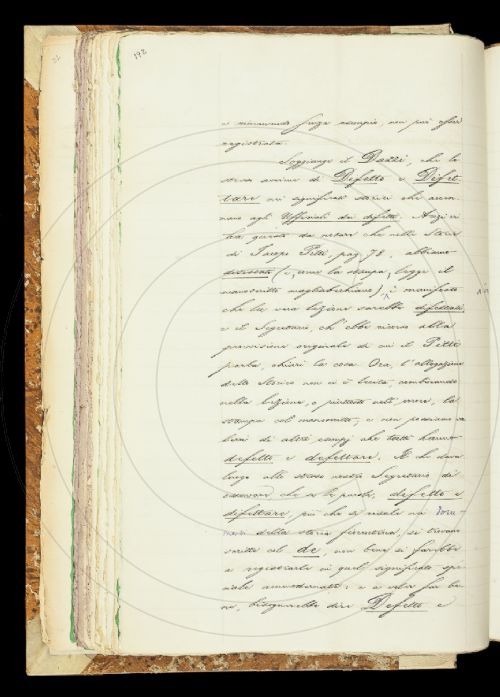 192
e rimanendo senza esempio, non può essere
registrata.
Soggiunge il Dazzi, che lo
stesso avviene di Defetto e Difet-
tare nei significati storici che accen-
nano agli Uffiziali dei difetti. Anzi vi
ha questo da notare che nelle Storie
di Jacopo Pitti, pag. 78, abbiamo
(e, come la stampa, legge il
manoscritto magliabechiano), è manifesto
che la vera lezione sarebbe difettati,
e il Segretario, ch'ebbe ricorso alla
provvisione originale di cui il Pitti
parla, chiarì la cosa. Ora, l'allegazione
dello Storico non ci è lecita, combinando
nella lezione, o piuttosto nell'errore, la
stampa col manoscritto; e non possiamo va-
lerci di altri esempj che tutti hanno
defetto e defettare. Il che dava
luogo allo stesso nostro Segretario di
osservare che se le parole, defetto e
difettare, più che di rado nei Docu-
menti della storia fiorentina, si trovano
scritte col de, non bene si farebbe
a registrarle in quel significato spe-
ciale ammodernate: e a voler far be-
ne, bisognerebbe dire Defetto e